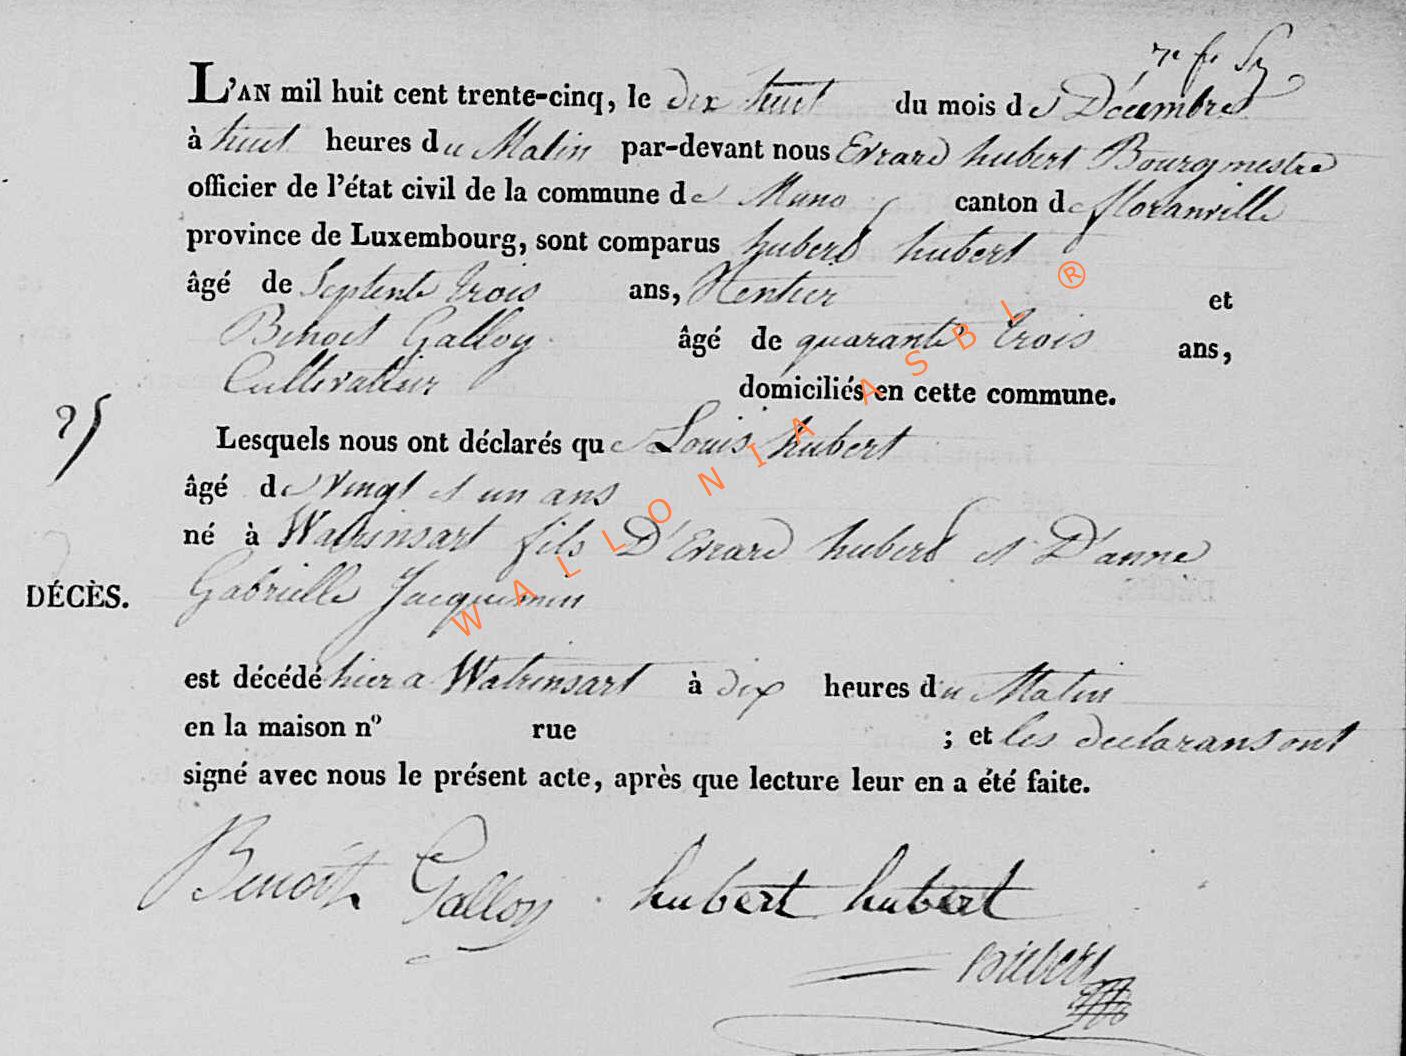 L'AN mil huit cent trente-cinq, le dix huit du mois de Décembre
à huit heures du Matin par-devant nous Evrard hubert Bourgmestre
officier de l'état civil de la commune de Muno canton de floranville
province de Luxembourg, sont comparus hubert hubert
âgé de Septente trois ans, Rentier et
Benoit Galloy âgé de quarante trois ans,
Cultivateur domiciliés en cette commune.
25
Lesquels nous ont déclarés que Louis hubert
âgé de vingt et un ans
né à Watrinsart fils D'Evrard hubert et D'anne
DÉCÈS.
Gabrielle Jacquemin
est décédé hier a Watrinsart à dix heures du Matin
en la maison n° rue ; et les declarans ont
signé avec nous le présent acte, après que lecture leur en a été faite.
Benoit Galloy hubert hubert
WALLONIA ASBL ®